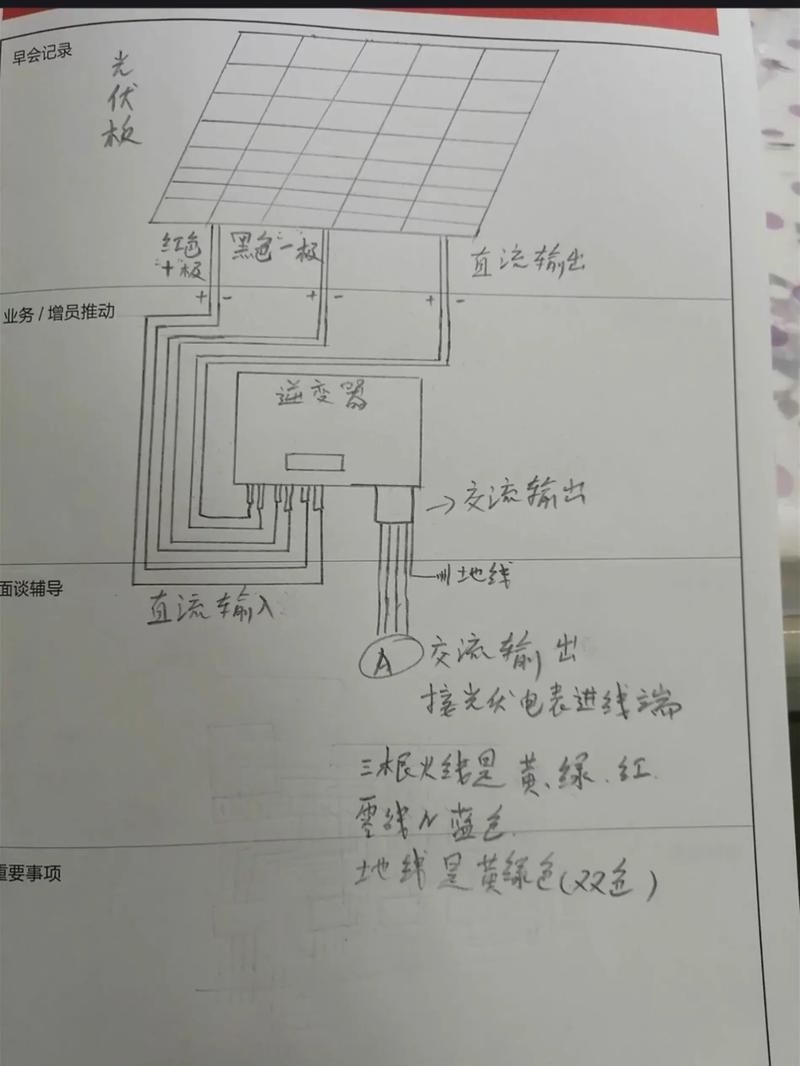 早会记录
光伏板
红色
"+"极
黑色"-"极
直流输出
+ - + - + -
业务/增员推动
逆变器
→交流输出
地线
面谈辅导
直流输入
A
交流输出
接光伏电表进线端
三根火线是黄、绿、红.
零线N蓝色.
重要事项
地线是黄绿色(双色)